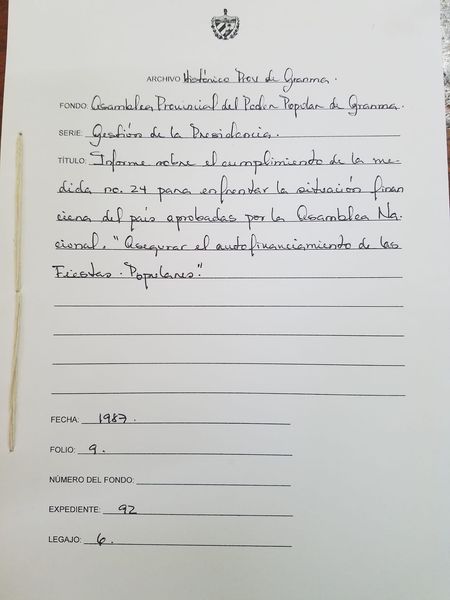 ARCHIVO Histórico Prov de Granma.
FONDO: Asamblea Provincial del Poder Popular de Granma.
SERIE: Gestión de la Presidencia.
TÍTULO: Informe sobre el cumplimiento de la me-
dida no. 24 para enfrentar la situación finan
ciera del país aprobadas por la Asamblea Na-
cional. "Asegurar el autofinanciamiento de las
Fiestas Populares."
FECHA: 1987.
FOLIO: 9.
NÚMERO DEL FONDO:
EXPEDIENTE: 92
LEGAJO: 6.